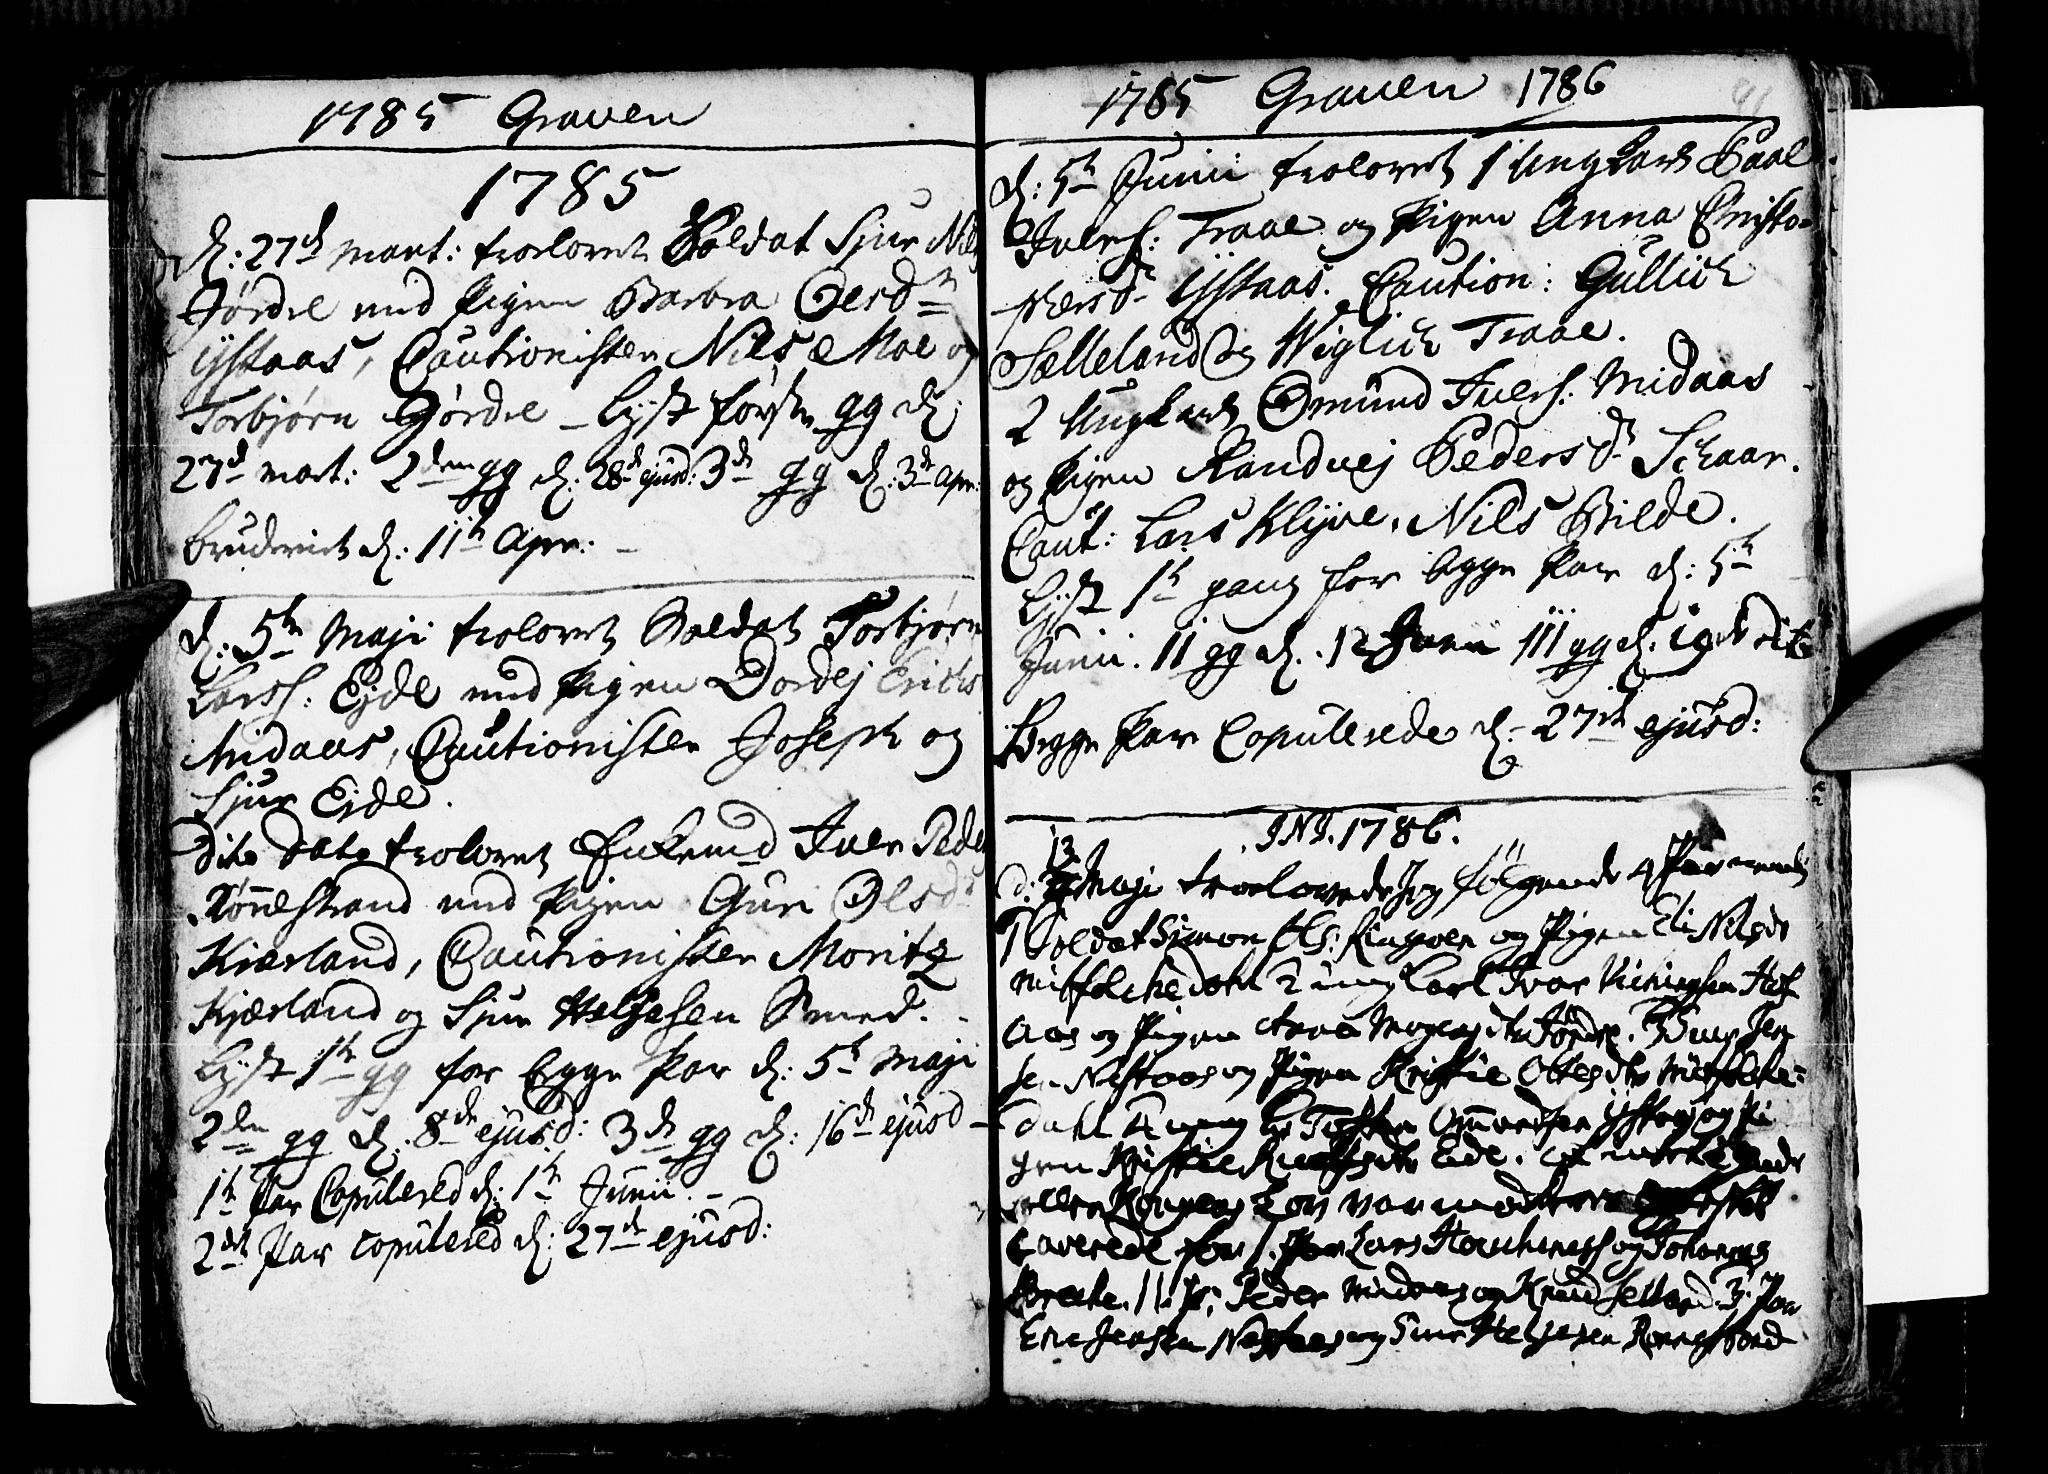 1785 Graven
1785
d: 27d Mart: troelovet Soldat Sjur Nils
Jørdre med Pigen Barbra Olsdn
Ystaas, Cautionister Nils Moe og
Torbjørn Gjørdre – Lyst første gg d:
27d Mart: 2den gg d: 28d ejusd: 3de gg d: 3de Apr:
bruderiet d: 11te Apr: –
d: 5te Maji trolovet Soldat Torbjørn
Larss: Ejde med Pigen Dordej Erichs
Midaas, Cautionister Joseph og
Sjur Ejde.
dito dato trolovet Enkemd Iver Peder
Rønnestrand med Pigen Guri Olsdr
Kiærland, Cautionister Moritz
Kjærland og Sjur Helgesen Smed.
Lyst 1te gg for begge Par d: 5te Maji
2den gg d: 8de ejusd: 3de gg d: 16de ejusd –
1te Par Copulered d: 1te Junii. –
2det Par copulered d: 27de ejusd:
1785 Graven 1786
d: 5te Junii trolovet 1 Ungkarl Paal
Ivers: Traae og Pigen Anna Christo-
phersdr Ystaas. Caution: Gullich
Sælleland og Wiglich Traae.
2 Ungkarl Omund Ivers: Midaas
og Pigen Randvej Pedersdr Schaar.
Caut: Lars Klyve, Nils Bilde.
Lyst 1te gang for begge Par d: 5te
Junii. II gg d. 12 Junii III gg d. 19de dito
Begge Par Copulerede d: 27de ejusd:
.INI. 1786.
d: 13 Maji troelovede Jeg følgende 4 Par
1 Soldat Simon Ols: og Pigen Eli Nilsdr
2 ung Karl Ivar
Aas og Pigen Mogensdtr Jørdre. 3 ung
Nestaas og Pigen Kristie
dahl 4 ung K Ommundsen Ystaas og Pi
gen Eide.
Kongens Lov var
Caverede for 1. Par Lars og Johannes
11. P: Peder Midaas og Knud Selland 3. Par
Jensen Nestaas og Siur Helgesen